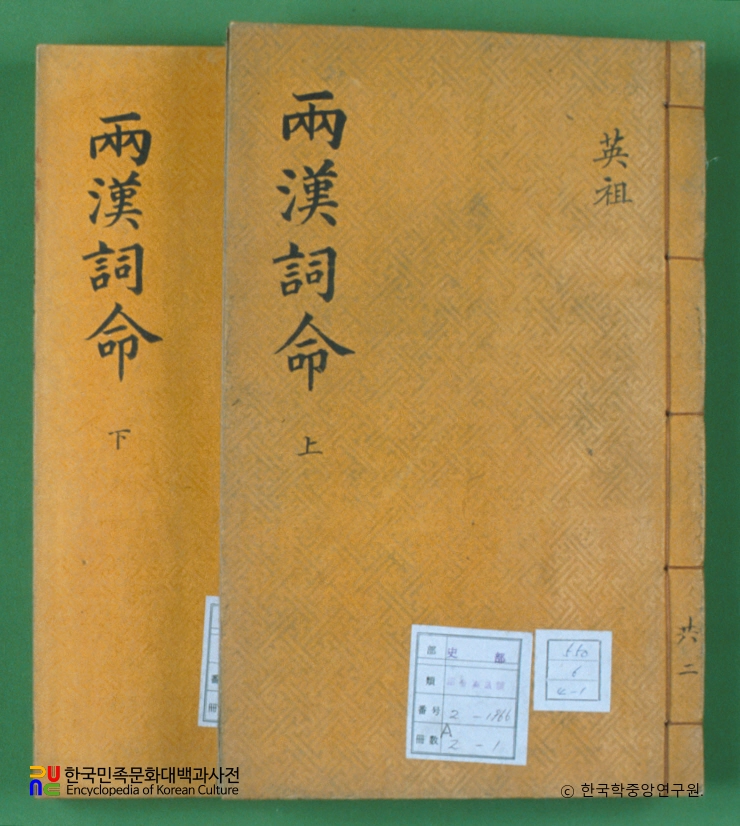 兩漢詞命
下
兩漢詞命
上
英祖
共二
部 史 部
類
番号 2-1966
冊数 A 2-1
550
6
4-1
番
冊
한국민족문화대백과사전
Encyclopedia of Korean Culture
© 한국학중앙연구원